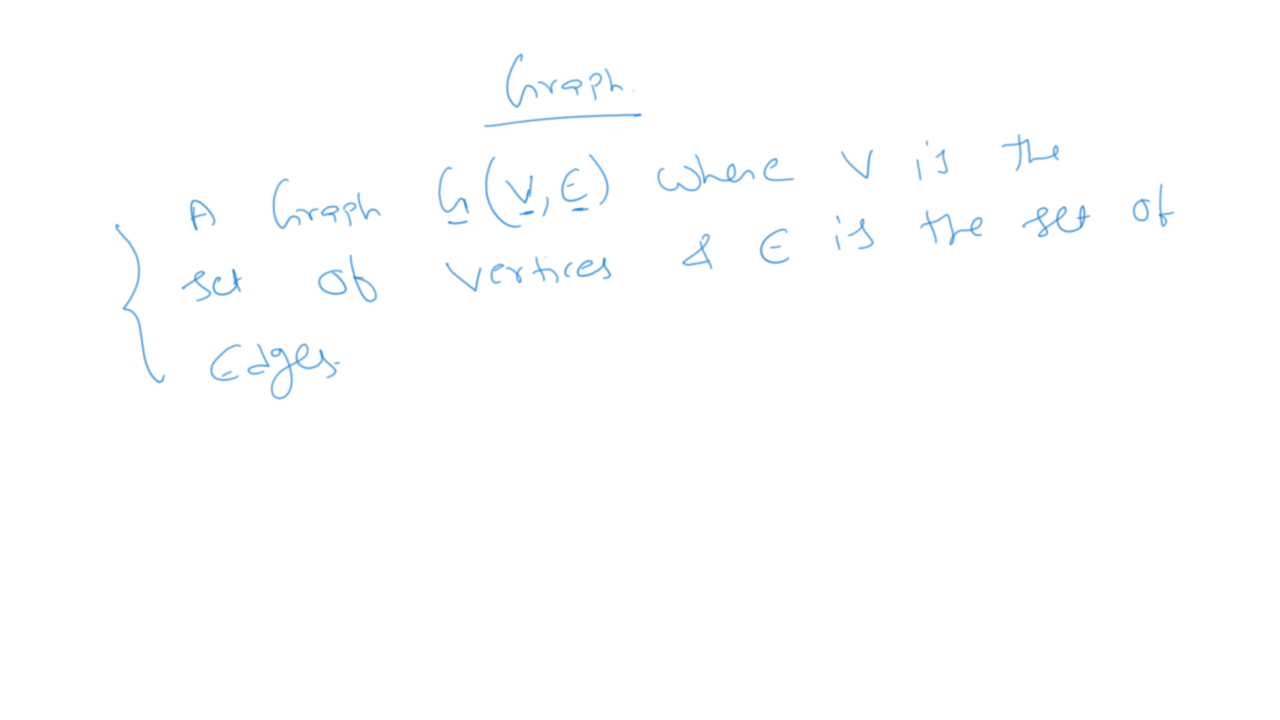 Graph.
A Graph G(V,E) where V is the
set of vertices & E is the set of
Edges.